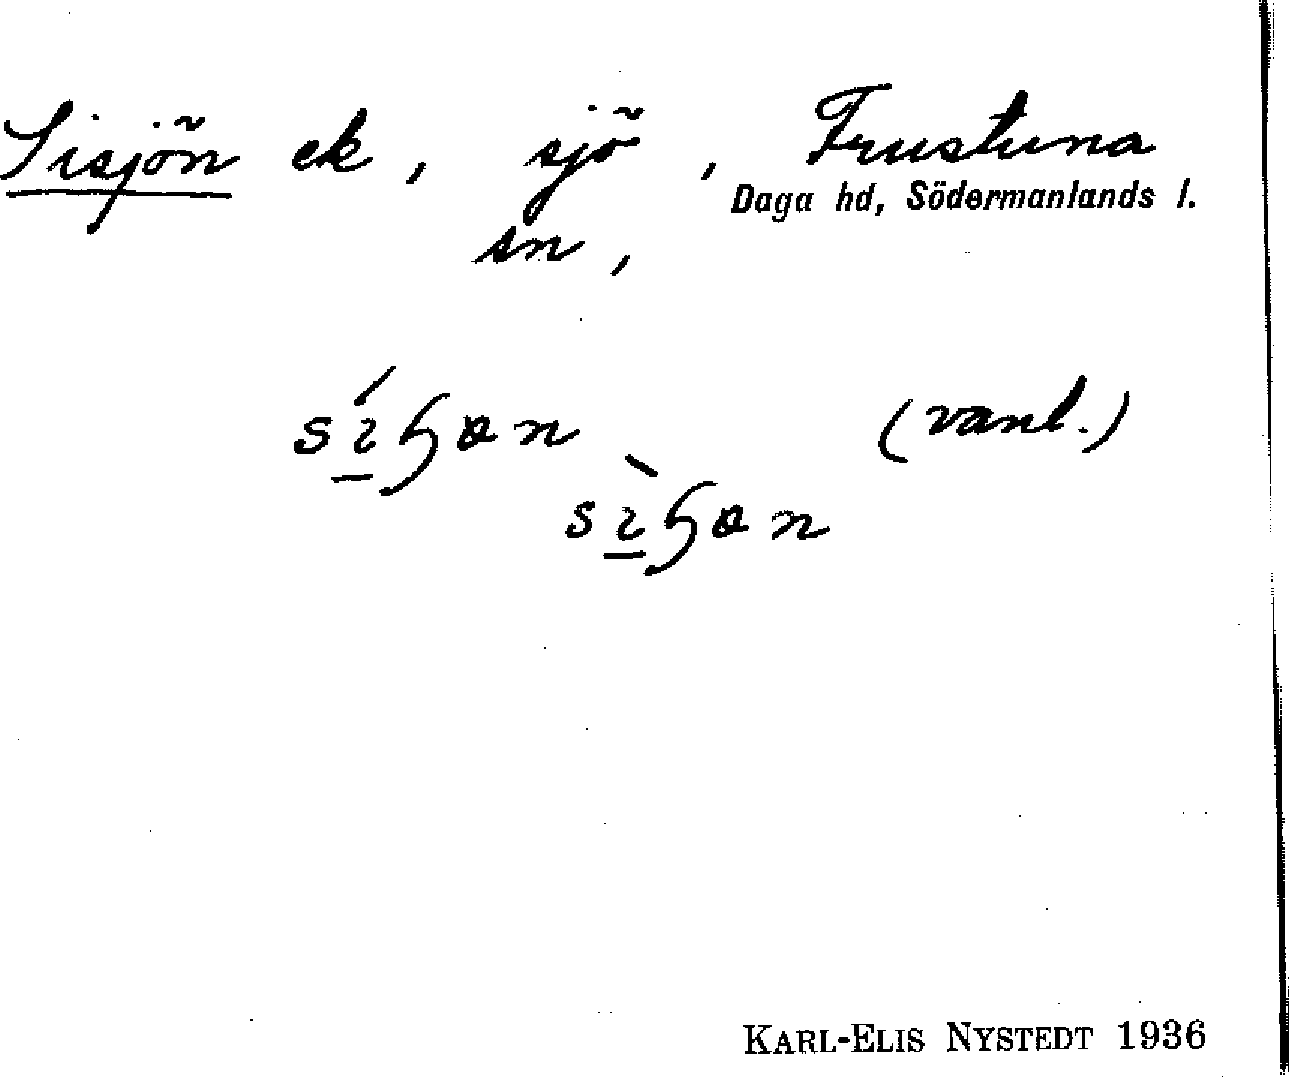 Sisjön ek, sjö, Frustuna
Daga hd, Södermanlands l.
sn,
(vanl.)
KARL-ELIS NYSTEDT 1936